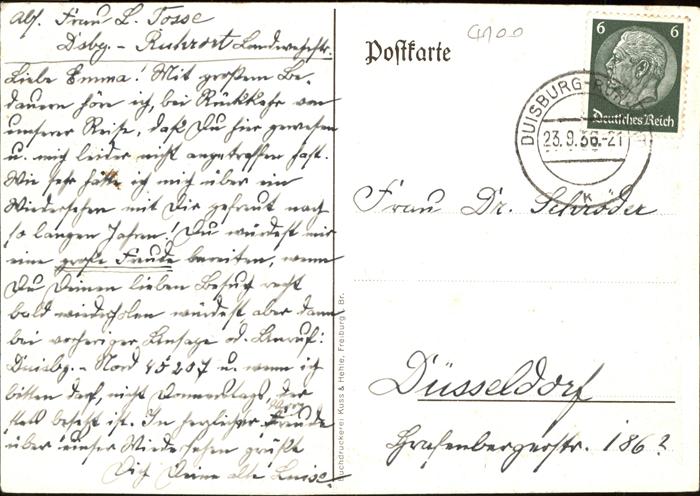 Abs. Frau L. Tosse
Dsbg.-Ruhrort Landwehrstr.
Liebe Emma! Mit großem Be-
dauern höre ich, bei Rückkehr von
unserer Reise, daß Du hier gewesen
u. mich leider nicht angetroffen hast.
Wie sehr hätte ich mich über ein
Wiedersehen mit Dir gefreut nach
so langen Jahren! Du würdest mir
eine große Freude bereiten, wenn
Du Deinen lieben Besuch recht
bald wiederholen würdest aber dann
bei vorheriger Ansage od. Anruf:
Duisbg.-Nord 45207 u. wenn ich
bitten darf, nicht Donnerstags, der
stets besetzt ist. In herzlicher Freude
über unser Wiedersehen grüßt
Dich Deine alte Luise.
Postkarte
6 6
Deutsches Reich
DUISBURG-RUH
23.9.36.-21
k
Frau Dr. Schröder
Düsseldorf
Grafenbergerstr. 186?
Buchdruckerei Kuss & Hehle, Freiburg i. Br.